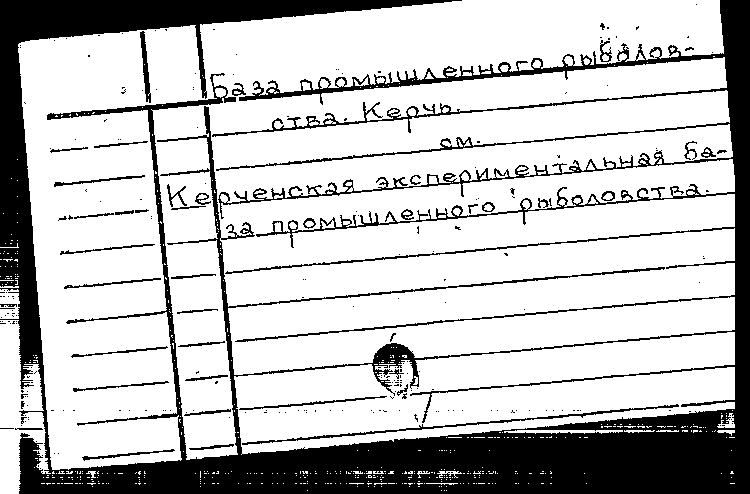 База промышленного рыболов-
ства. Керчь.
см.
Керченская экспериментальная ба-
за промышленного рыболовства.